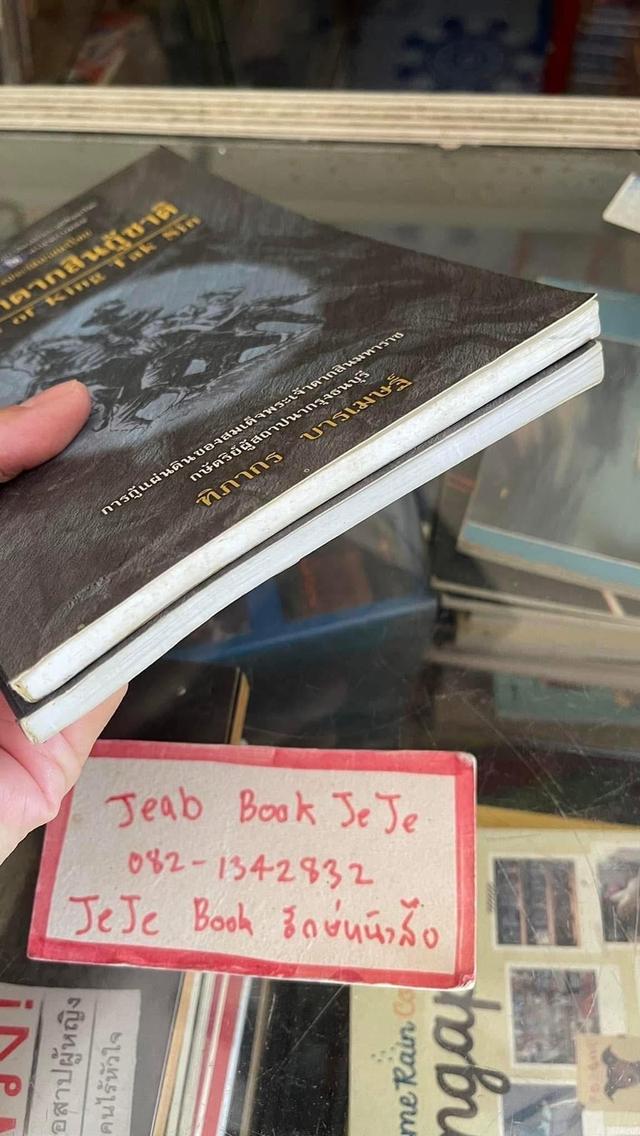 ตากสินกู้ชาติ
of King Tak Sin
การกู้แผ่นดินของสมเด็จพระเจ้าตากสินมหาราช
กษัตริย์ผู้สถาปนากรุงธนบุรี
ทิภากร บารเมษฐ์
Jeab Book JeJe
082-1342832
JeJe Book รักษ์หนังสือ
สาปผู้หญิง
คนไร้หัวใจ
me Rain
ngap